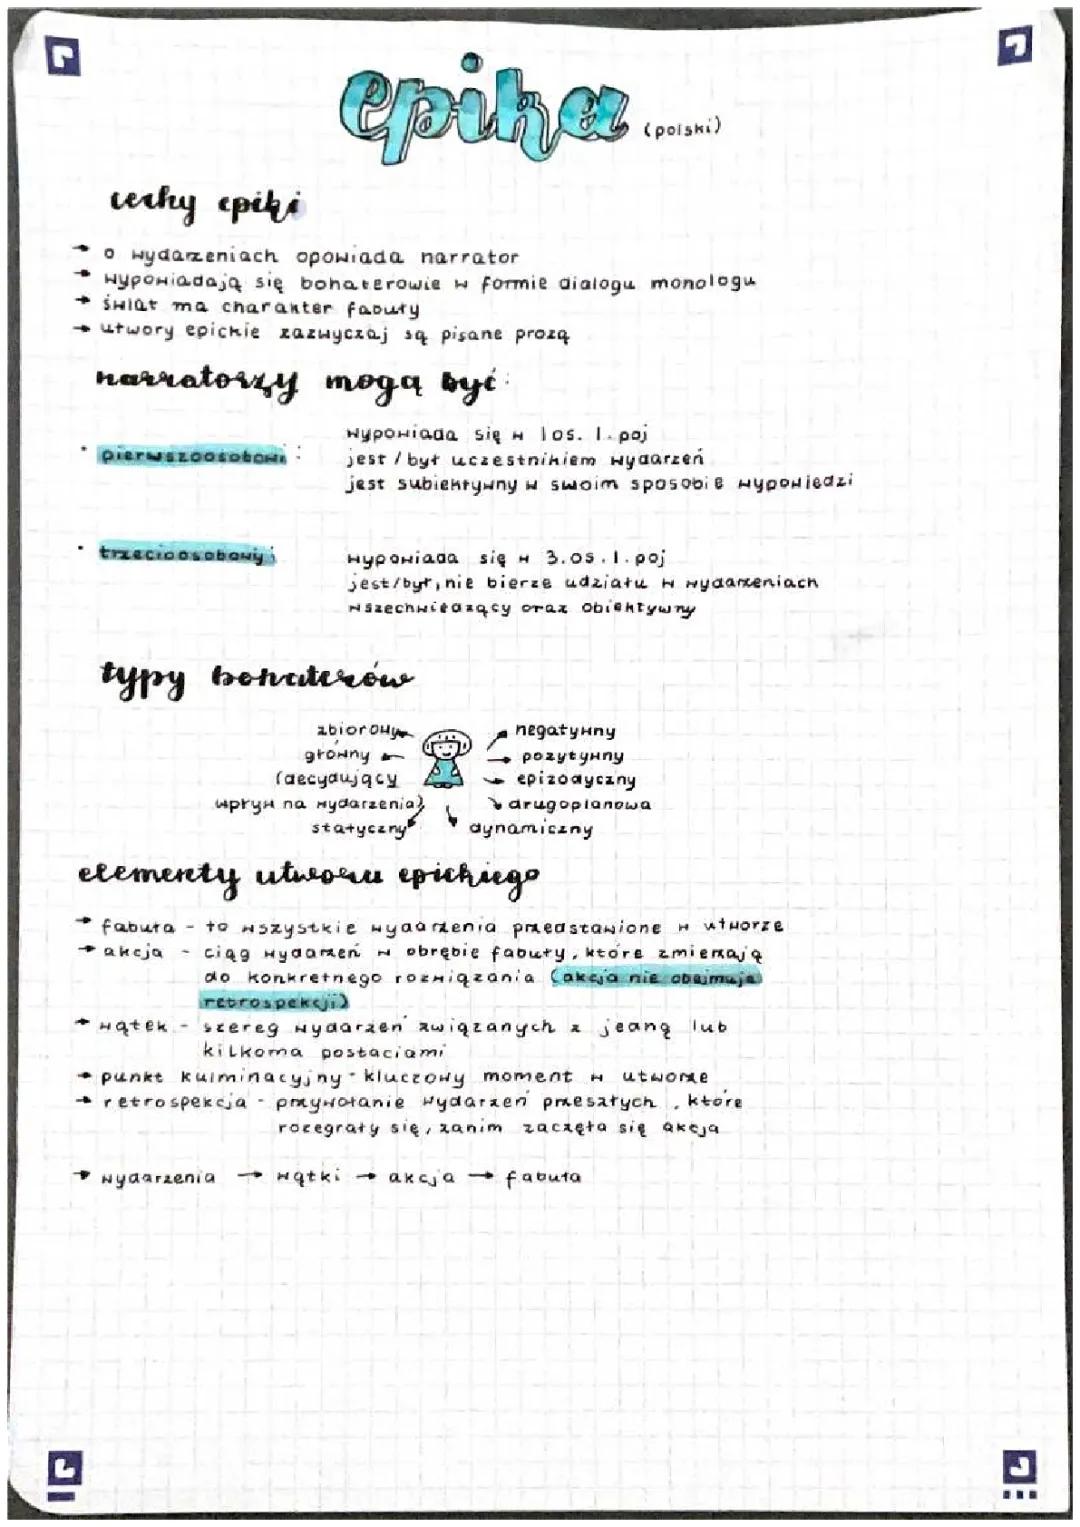 epika (polski)
cechy epiki
→ o wydarzeniach opowiada narrator
→ wypowiadają się bohaterowie w formie dialogu monologu
→ świat ma charakter fabuły
→ utwory epickie zazwyczaj są pisane prozą
narratorzy mogą być:
• pierwszoosobowi: wypowiada się w 1os. l. poj
jest / był uczestnikiem wydarzeń
jest subiektywny w swoim sposobie wypowiedzi
• trzecioosobowy: wypowiada się w 3.os.l.poj
jest/był, nie bierze udziału w wydarzeniach
wszechwiedzący oraz obiektywny
typy bohaterów
zbiorowy negatywny
główny pozytywny
(decydujący epizodyczny
wpływ na wydarzenia) drugoplanowa
statyczny dynamiczny
elementy utworu epickiego
→ fabuła - to wszystkie wydarzenia przedstawione w utworze
→ akcja - ciąg wydarzeń w obrębie fabuły, które zmierzają
do konkretnego rozwiązania (akcja nie obejmuje
retrospekcji)
→ wątek - szereg wydarzeń związanych z jedną lub
kilkoma postaciami
→ punkt kulminacyjny - kluczowy moment w utworze
→ retrospekcja - przywołanie wydarzeń przeszłych, które
rozegrały się, zanim zaczęła się akcja
→ wydarzenia → wątki → akcja → fabuła